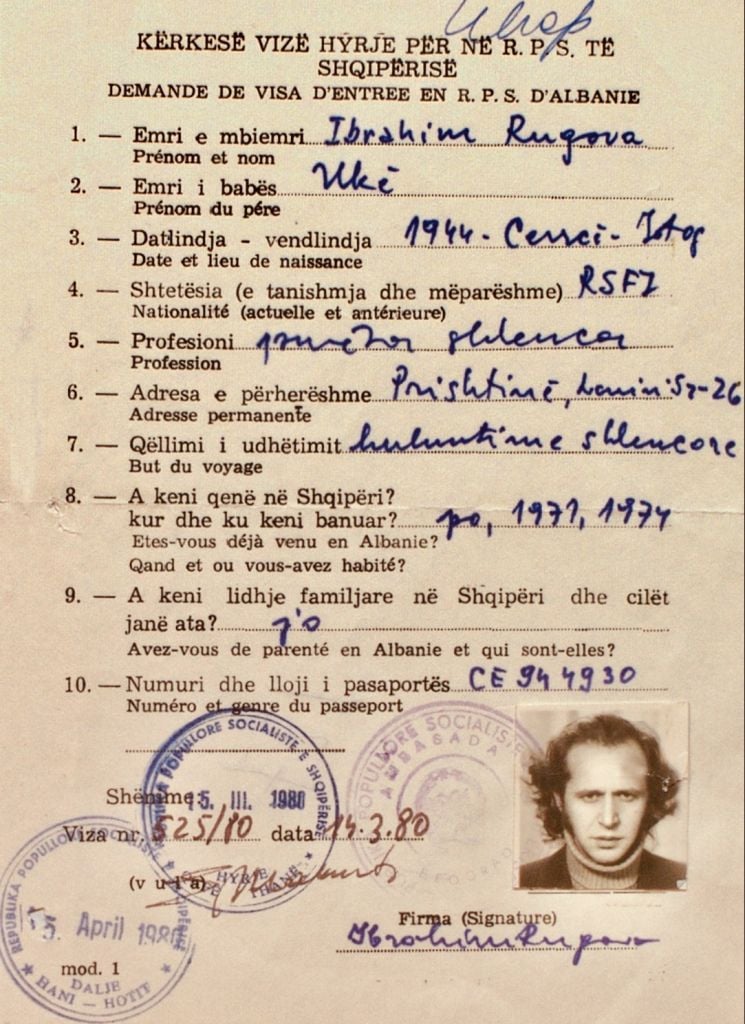 KËRKESË VIZË HYRJE PËR NË R. P. S. TË
SHQIPËRISË
DEMANDE DE VISA D'ENTREE EN R. P. S. D'ALBANIE
1. — Emri e mbiemri Ibrahim Rugova
Prénom et nom
2. — Emri i babës Ukë
Prénom du pére
3. — Datlindja - vendlindja 1944 - Cerrcë - Istog
Date et lieu de naissance
4. — Shtetësia (e tanishmja dhe mëparëshme) RSFJ
Nationalité (actuelle et antérieure)
5. — Profesioni punëtor shkencor
Profession
6. — Adresa e përherëshme Prishtinë, 26
Adresse permanente
7. — Qëllimi i udhëtimit hulumtime shkencore
But du voyage
8. — A keni qenë në Shqipëri?
kur dhe ku keni banuar? po, 1971, 1974
Etes-vous déjà venu en Albanie?
Qand et ou vous-avez habité?
9. — A keni lidhje familjare në Shqipëri dhe cilët
janë ata? jo
Avez-vous de parenté en Albanie et qui sont-elles?
10. — Numuri dhe lloji i pasaportës CE 944930
Numéro et genre du passeport
POPULLORE SOCIALISTE E SHQIPËRISË
15. III. 1980
HYRJE
POPULLORE SOCIALISTE
AMBASADA
Shënime:
Viza nr. 525/80 data 14.3.80
(v u l a)
Firma (Signature)
Ibrahim Rugova
REPUBLIKA POPULLORE SOCIALISTE E SHQIPËRISË
5. April 1980
mod. 1
DALJE
HANI — HOTIT